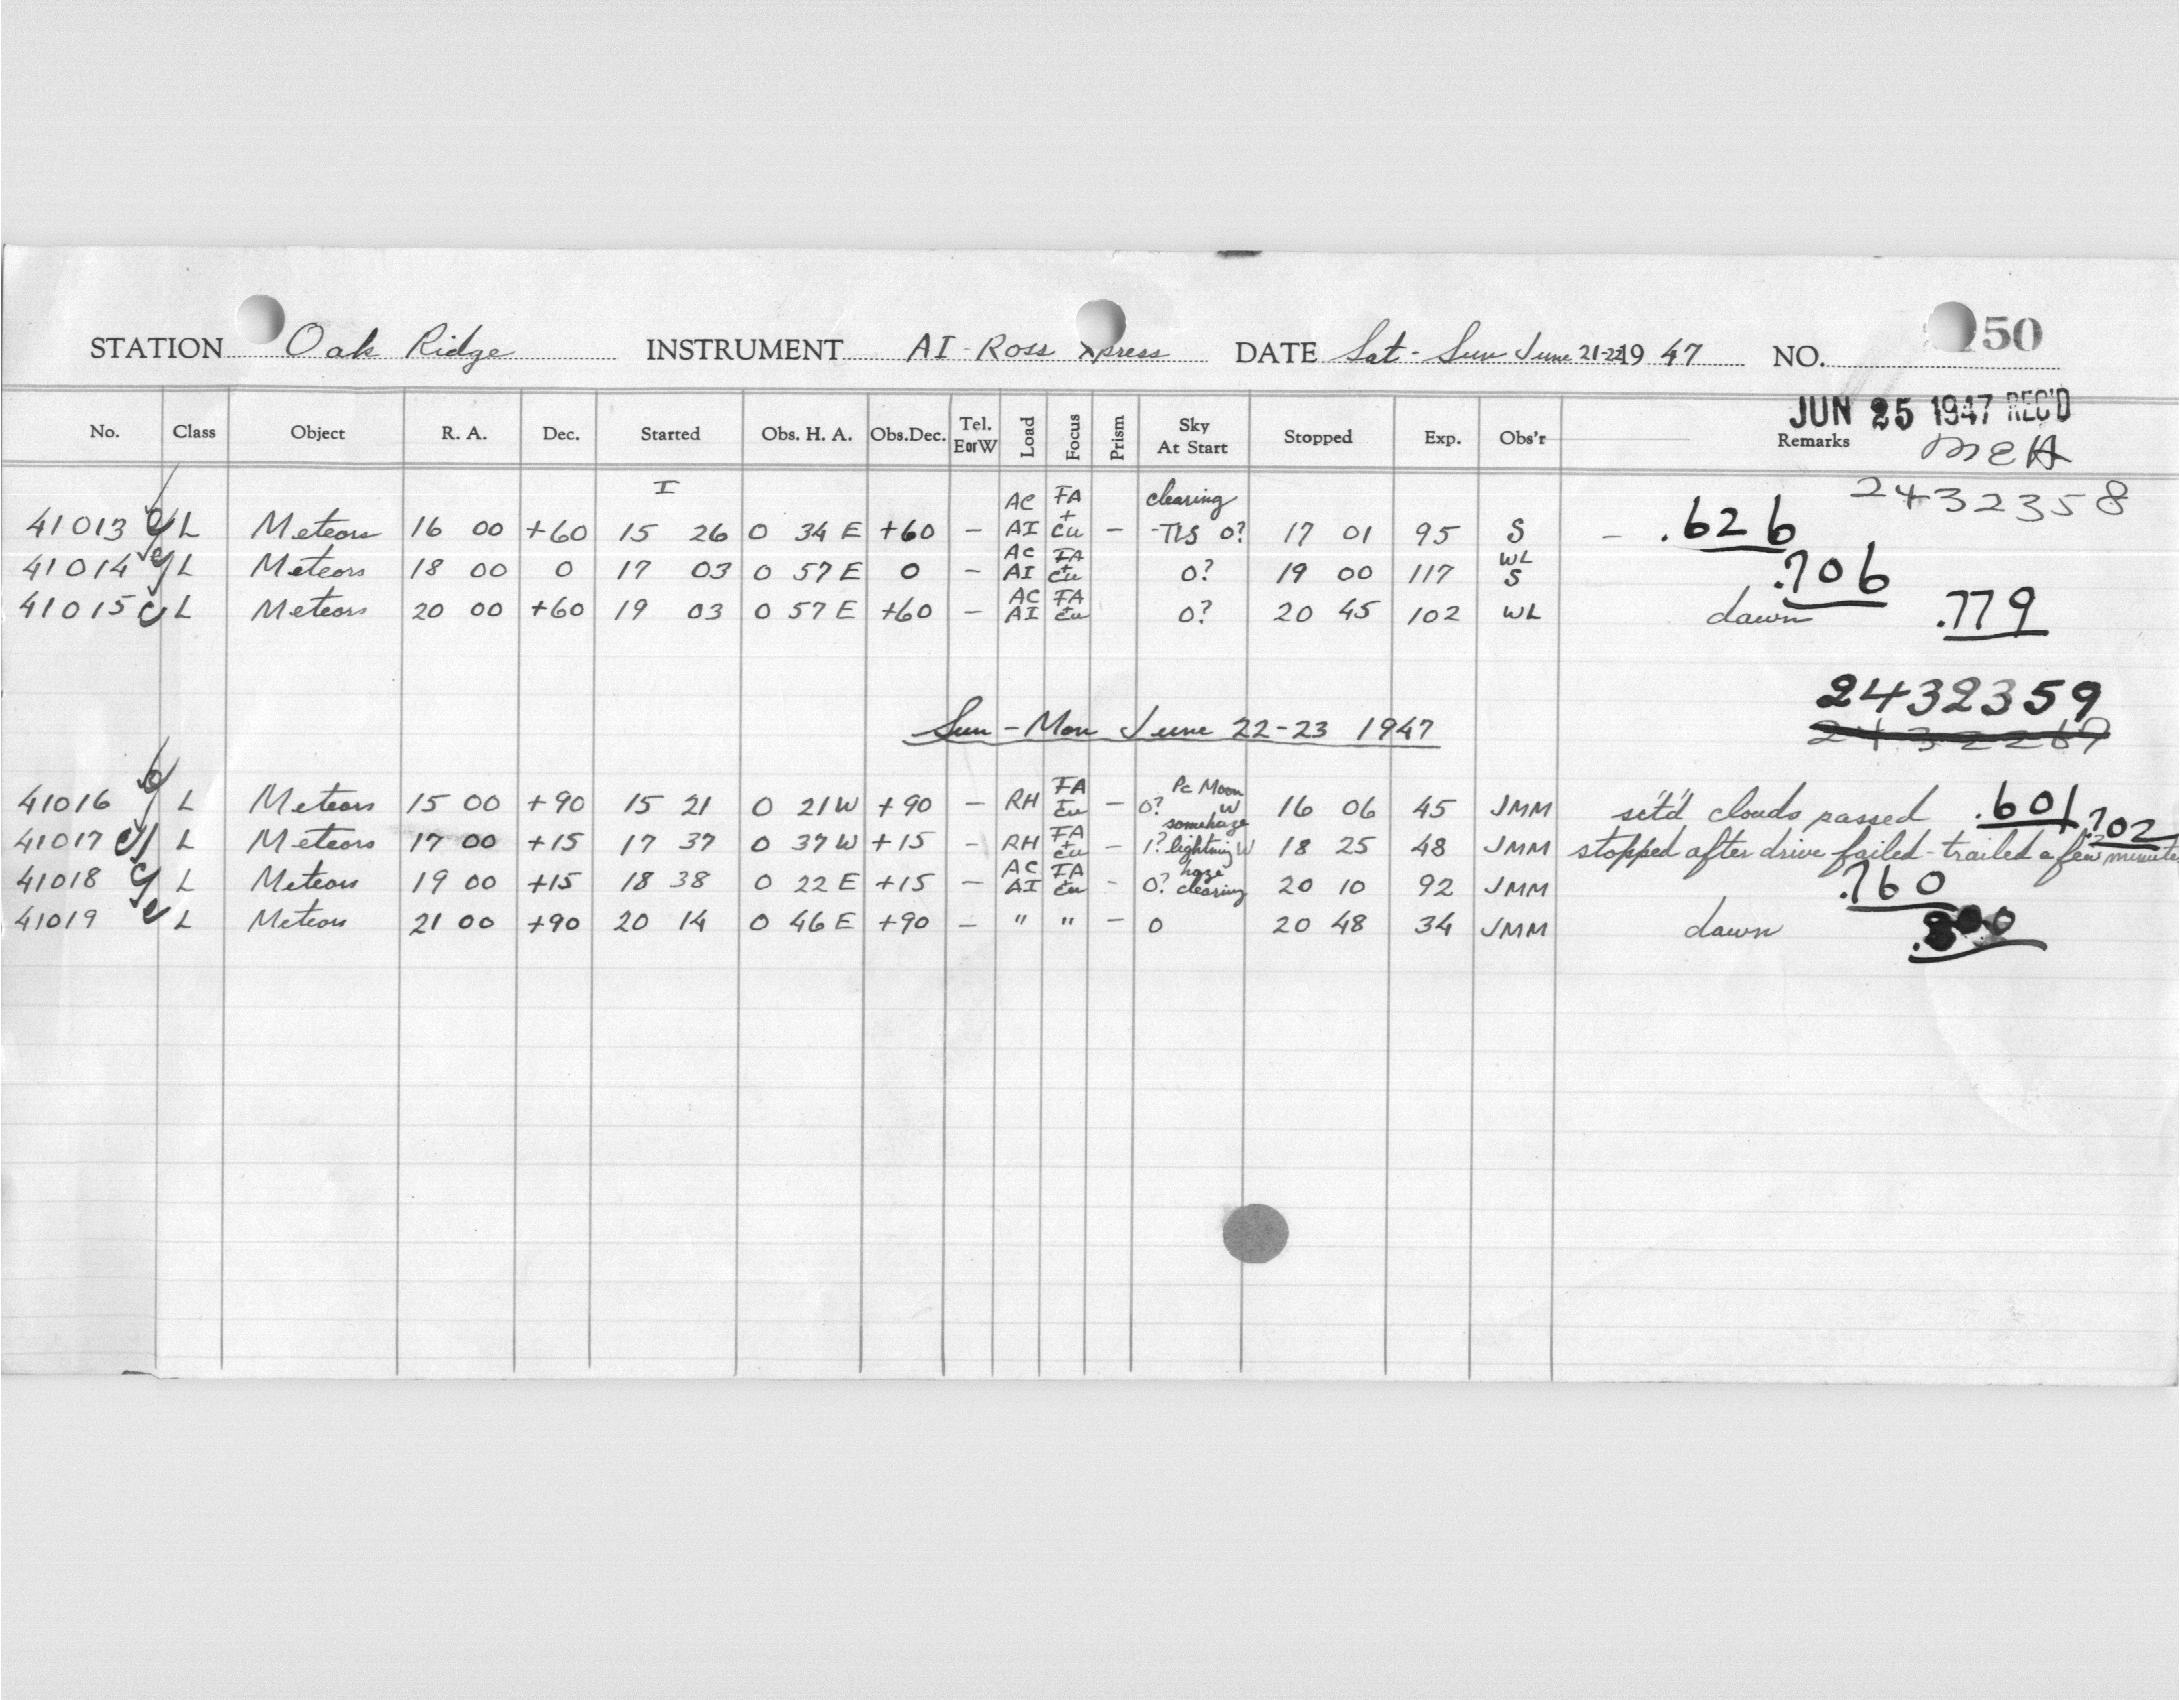 STATION Oak Ridge INSTRUMENT AI-Ross Xpress DATE Sat-Sun June 21-22 1947 NO. 50
JUN 25 1947 REC'D
No. Class Object R. A. Dec. Started Obs. H. A. Obs.Dec. Tel. EorW Load Focus Prism Sky At Start Stopped Exp. Obs'r Remarks
MEH
2432358
41013 L Meteors 16 00 +60 15 26 0 34 E +60 – AC AI FA + Eu – clearing TLS 0? 17 01 95 S – .626
41014 L Meteors 18 00 0 17 03 0 57 E 0 – AC AI FA + Eu 0? 19 00 117 WL S .706
41015 L Meteors 20 00 +60 19 03 0 57 E +60 – AC AI FA Eu 0? 20 45 102 WL dawn .779
2432359
Sun-Mon June 22-23 1947
41016 L Meteors 15 00 +90 15 21 0 21 W +90 – RH FA Eu – 0? Pc Moon W 16 06 45 JMM sct'd clouds passed .601
41017 L Meteors 17 00 +15 17 37 0 37 W +15 – RH FA + Eu – 1? some haze lightning W 18 25 48 JMM stopped after drive failed - trailed a few minutes .702
41018 L Meteors 19 00 +15 18 38 0 22 E +15 – AC AI FA Eu – 0? haze clearing 20 10 92 JMM .760
41019 L Meteors 21 00 +90 20 14 0 46 E +90 – " " – 0 20 48 34 JMM dawn .800